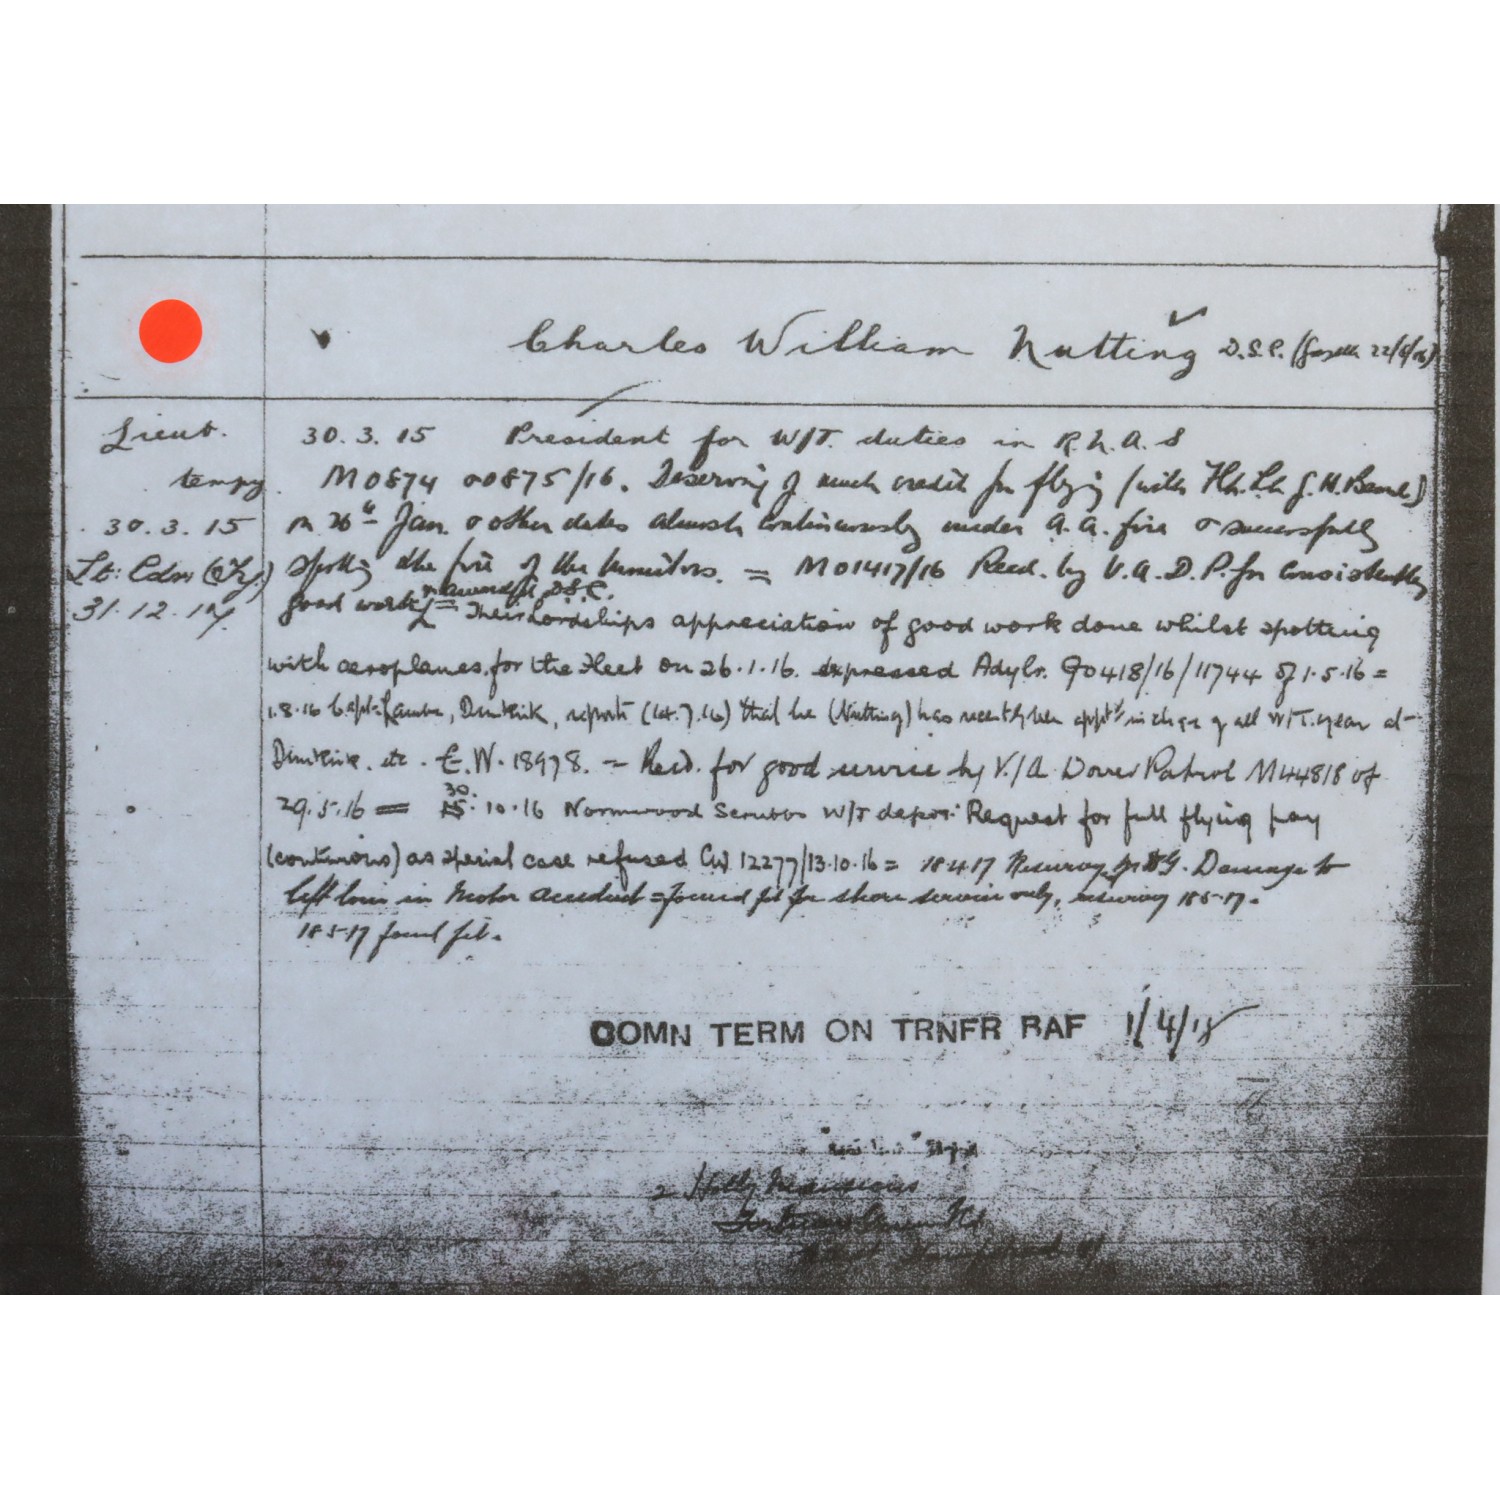 Charles William Nutting D.S.C. (Gazette 22/6/16)
Lieut. 30.3.15 President for W/T. duties in R.N.A.S
tempy. M0874 00875/16. Deserving of much credit for flying (with Fh. Lt.
30.3.15 on 26th Jan. & other dates almost continuously under A.A. fire & successfully
Lt: Cdr: spotting the fire of the Monitors. = M01417/16 Recd. by V.A.D.P. for consistently
31.12.17 good work & awarded D.S.C. = Their Lordships appreciation of good work done whilst spotting
with aeroplanes for the Fleet on 26.1.16. expressed Adylr. 90418/16/11744 of 1.5.16 =
1.8.16 Capt: Lambe, Dunkirk, reports (14.7.16) that he (Nutting) has recently been apptd in charge of all W/T. gear at
Dunkirk. etc. E.W. 18978. = Recd. for good service by V/A Dover Patrol M44818 of
29.5.16 = 30. 15. 10.16 Wormwood Scrubbs W/T depot: Request for full flying pay
(continuous) as special case refused CW 12277/13.10.16 = 18.4.17 Damage to
left loin in Motor accident = found fit for shore service only, resurvey 18.5.17.
18.5.17 found fit.
COMN TERM ON TRNFR RAF 1/4/18
2 Holly Mansions